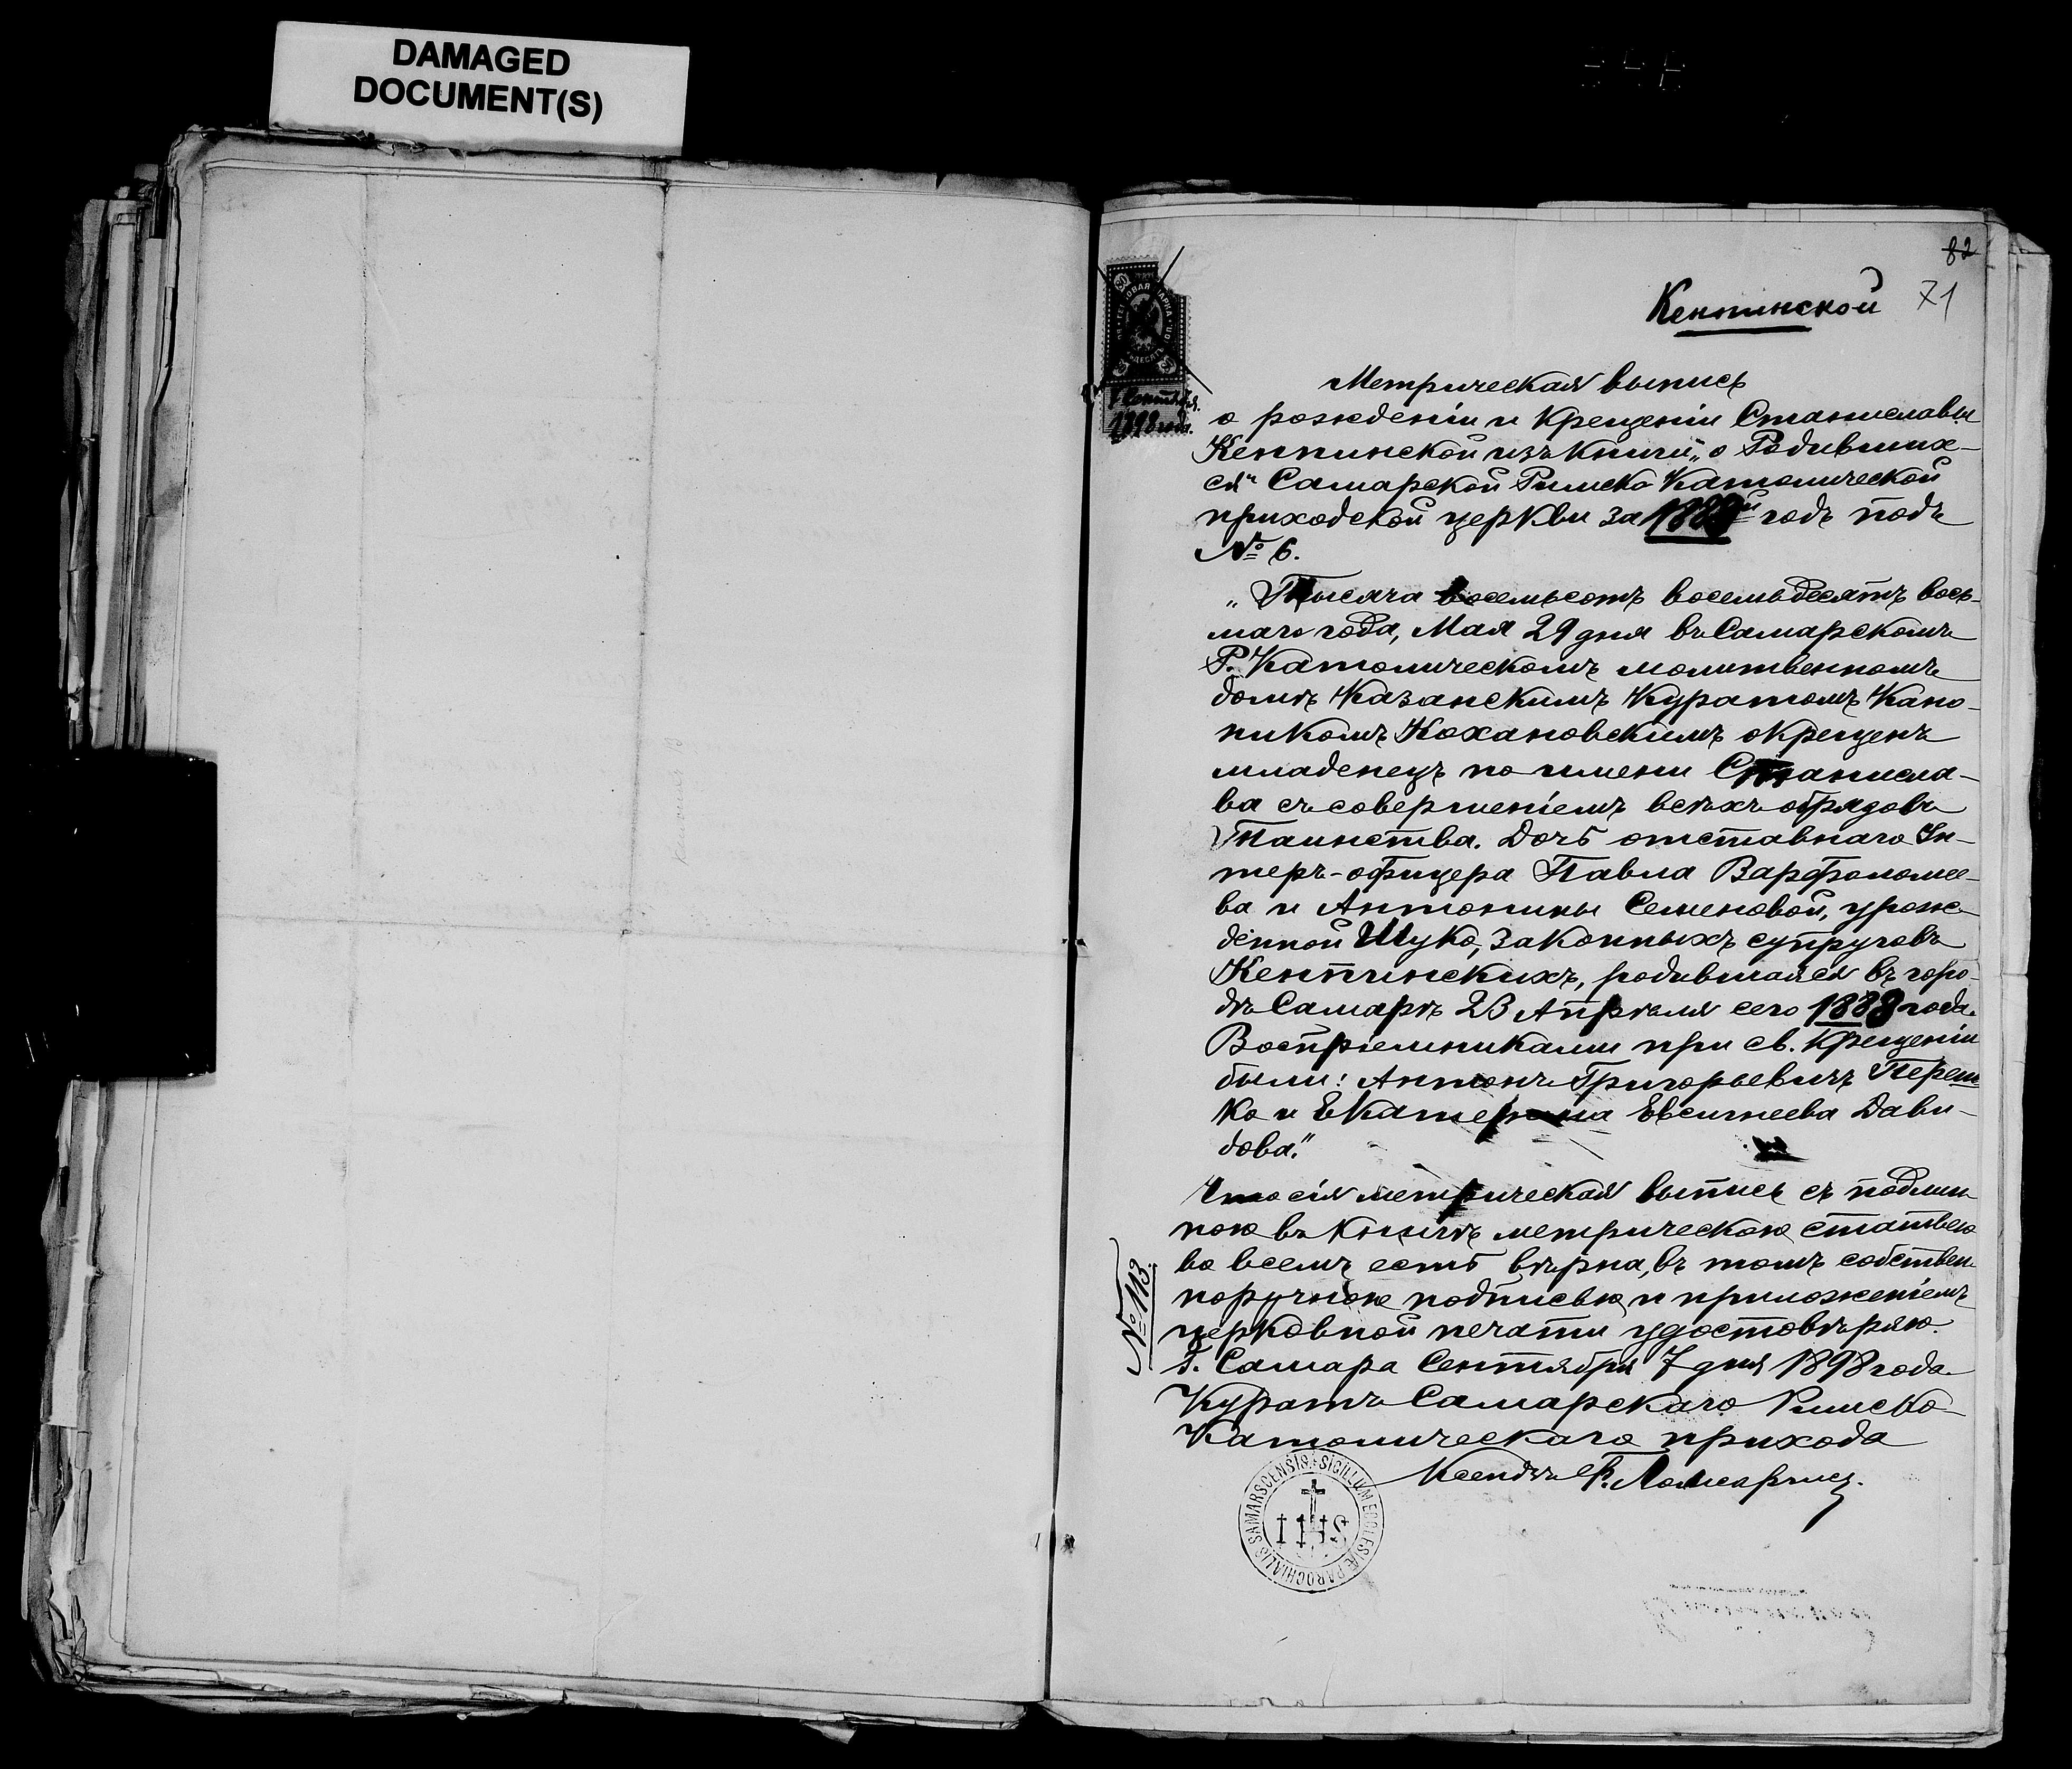 DAMAGED
DOCUMENT(S)
82
71
Кентинской
7 Сентября
1898 года.
Метрическая выпись
о рожденіи и Крещеніи Станиславы
Кептинской изъ книги „о Родивших-
ся“ Самарской Римско Католической
приходской церкви за 1888й годъ подъ
№ 6.
„Тысяча восемьсотъ восемьдесятъ вось-
маго года, Мая 29 дня въ Самарскомъ
Р. Католическомъ молитвенномъ
домѣ Казанскимъ Куратомъ Кано-
никомъ Кохановскимъ окрещенъ
младенецъ по имени Станисла-
ва съ совершеніемъ всѣхъ обрядовъ
Таинства. Дочь отставнаго Ун-
теръ-офицера Павла Варфоломее-
ва и Антонины Семеновой, урож-
денной Шуко, законныхъ супруговъ
Кентинскихъ, родившаяся въ горо-
дѣ Самарѣ 23 Апрѣля сего 1888 года.
Воспріемниками при св. Крещеніи
были: Антонъ Григорьевичъ Переш
ко и Екатерина Евсигнеева Дави-
дова."
Что сія метрическая выпись съ подлин
ною въ книгѣ метрическою статьею
во всемъ есть вѣрна, въ томъ собствен
норучною подписью и приложеніемъ
церковной печати удостовѣряю.
Г. Самара Сентября 7 дня 1898 года.
№ 113.
Куратъ Самарскаго Римско-
Католическаго прихода
Ксендзъ
SIGILLUM ECCLESIÆ PAROCHIALIS SAMARSCENSIS
IHS